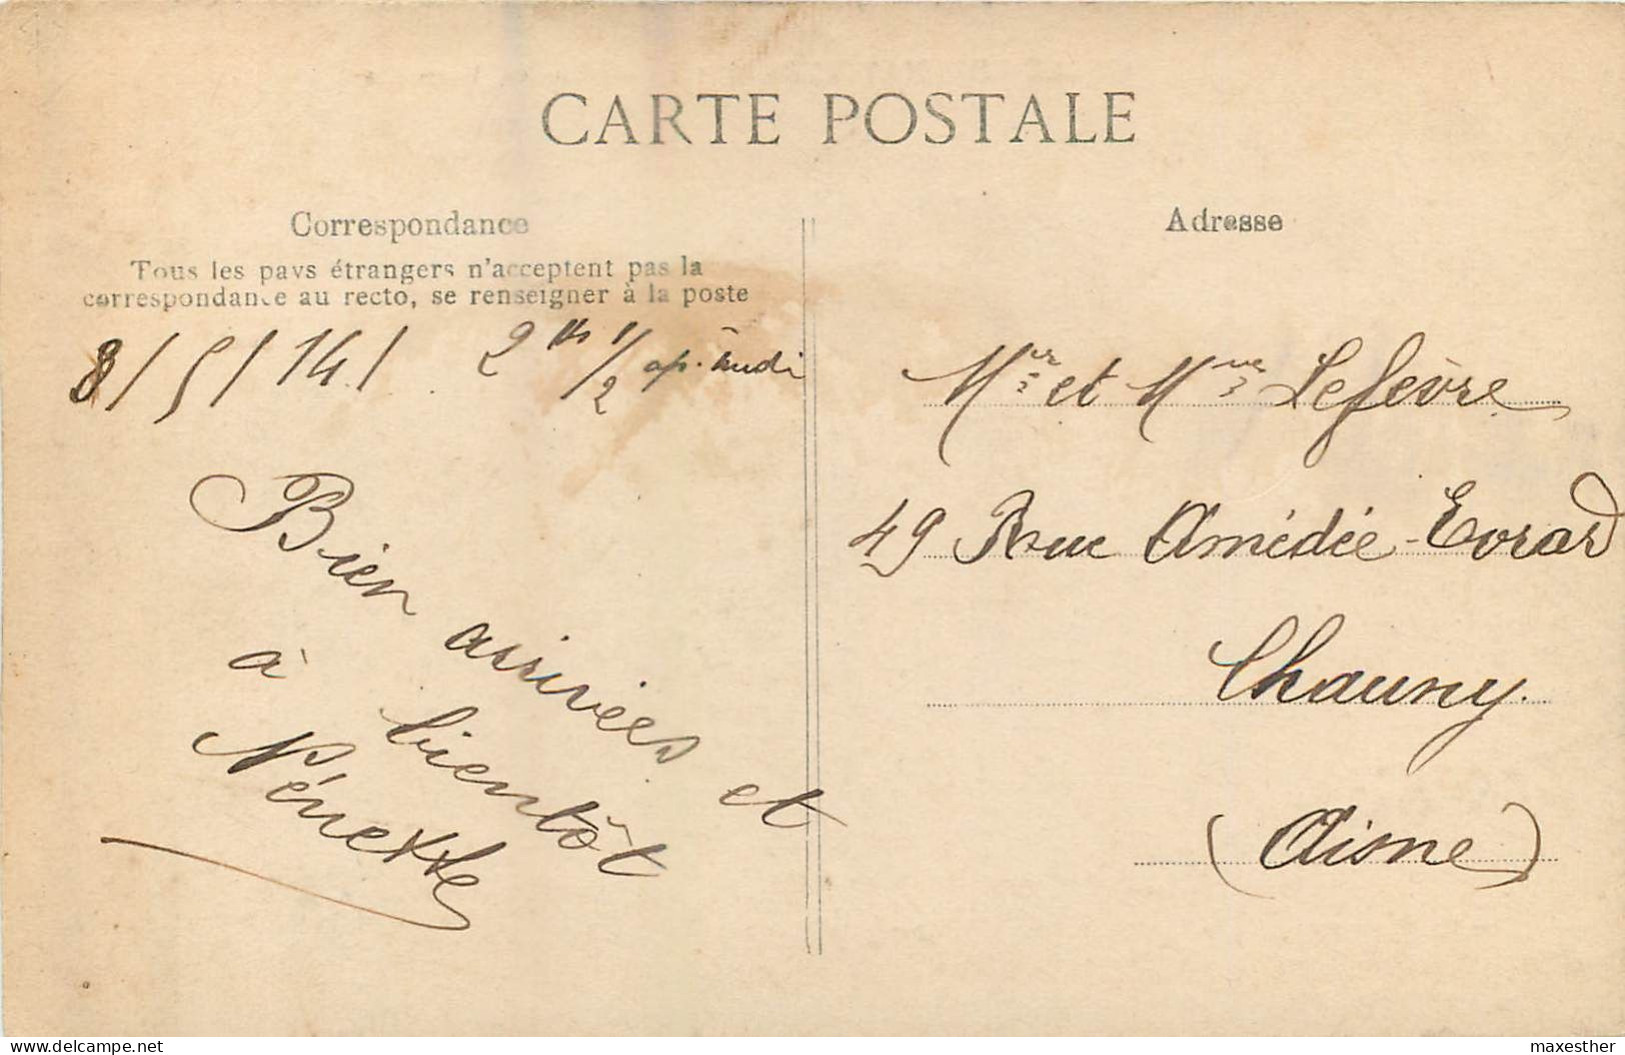 CARTE POSTALE
Correspondance
Tous les pays étrangers n'acceptent pas la
correspondance au recto, se renseigner à la poste
8/5/14/ 2 hs 1/2 ap. midi
Bien arrivées et
à bientôt
Nénette
Adresse
Mr et Mme Lefèvre
49 Rue Amédée-Evrard
Chauny
(Aisne)
delcampe.net
maxesther